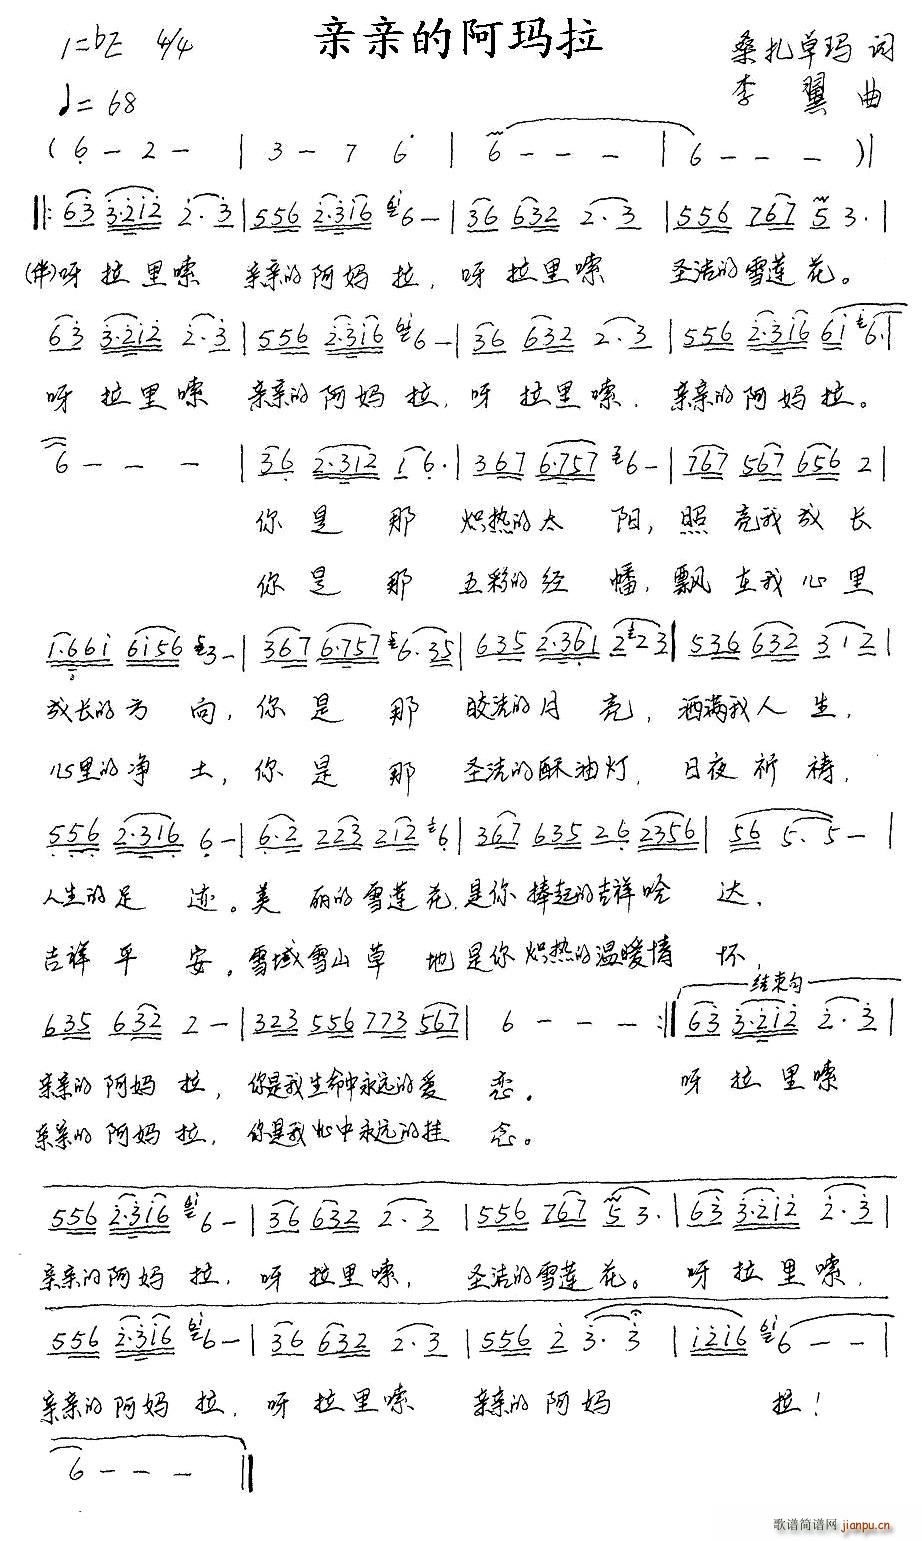 亲亲的阿玛拉
1=bE 4/4
桑扎卓玛 词
♩=68
李翼 曲
( 6 - 2 - | 3 - 7 6 | 6 - - - | 6 - - - )|
‖: 63 3·212 2·3 | 556 2·316 6 - | 36 632 2·3 | 556 767 5 3· |
(伴)呀拉里嗦 亲亲的阿妈拉，呀拉里嗦 圣洁的雪莲花。
63 3·212 2·3 | 556 2·316 6 - | 36 632 2·3 | 556 2·316 61 6· |
呀拉里嗦 亲亲的阿妈拉，呀拉里嗦，亲亲的阿妈拉。
6 - - - | 36 2·312 16· | 367 6·757 6 - | 767 567 656 2 |
你是那 炽热的太阳，照亮我成长
你是那 五彩的经幡，飘在我心里
1·661 6156 3 - | 367 6·757 6·35 | 635 2·361 223 | 536 632 312 |
成长的方向，你是那 皎洁的月亮，洒满我人生，
心里的净土，你是那 圣洁的酥油灯，日夜祈祷，
556 2·316 6 - | 6·2 223 212 6 | 367 635 26 2356 | 56 5·5 - |
人生的足迹。美丽的雪莲花，是你捧起的吉祥哈达，
吉祥平安。雪域雪山草地是你炽热的温暖情怀，
结束句
635 632 2 - | 323 556 773 567 | 6 - - - :‖ 63 3·212 2·3 |
亲亲的阿妈拉，你是我生命中永远的爱恋。 呀拉里嗦
亲亲的阿妈拉，你是我心中永远的挂念。
556 2·316 6 - | 36 632 2·3 | 556 767 5 3· | 63 3·212 2·3 |
亲亲的阿妈拉，呀拉里嗦，圣洁的雪莲花。呀拉里嗦，
556 2·316 6 - | 36 632 2·3 | 556 2 3·3 | 1216 6 - - |
亲亲的阿妈拉，呀拉里嗦 亲亲的阿妈 拉！
6 - - - ‖
歌谱简谱网 jianpu.cn